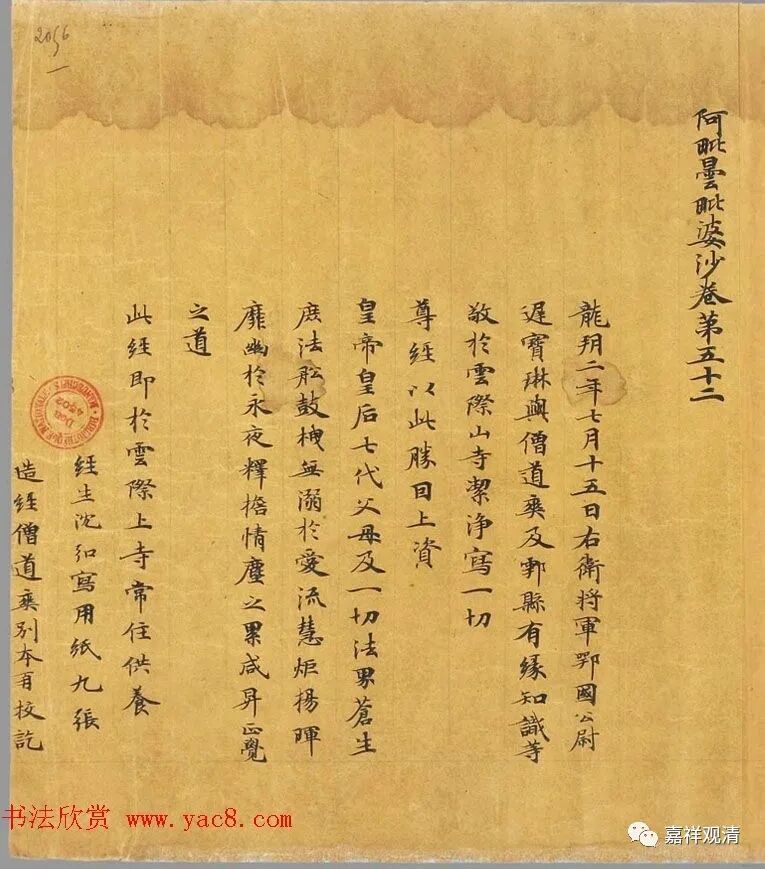 阿毗曇毗婆沙卷第五十二
龍朔二年七月十五日右衛將軍鄂國公尉
遲寶琳與僧道爽及鄠縣有緣知識等
敬於雲際山寺潔淨寫一切
尊經以此勝因上資
皇帝皇后七代父母及一切法界蒼生
庶法舩鼓栧無溺於愛流慧炬揚暉
靡幽於永夜釋擔情塵之累咸昇正覺
之道
此經即於雲際上寺常住供養
經生沈弘寫用紙九張
造經僧道爽別本再校訖
2056
DON
4502
书法欣赏 www.yac8.com
嘉祥观清